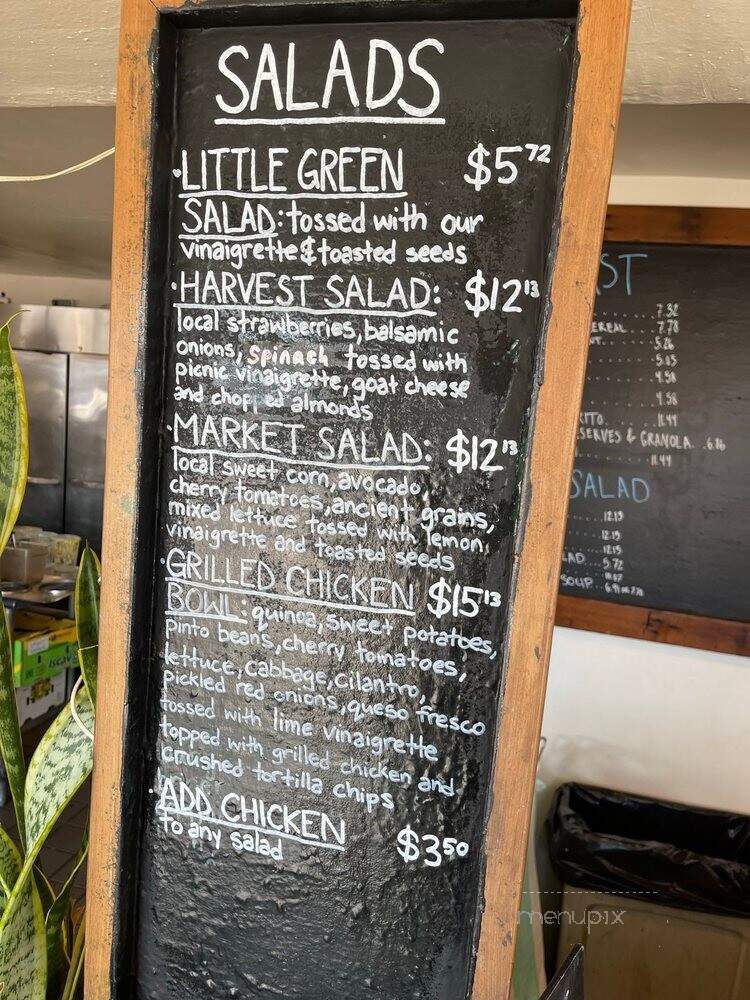 SALADS
·LITTLE GREEN $5 72
SALAD: tossed with our
vinaigrette & toasted seeds
·HARVEST SALAD: $12 13
local strawberries, balsamic
onions, spinach tossed with
picnic vinaigrette, goat cheese
and chopped almonds
·MARKET SALAD: $12 13
local sweet corn, avocado,
cherry tomatoes, ancient grains,
mixed lettuce tossed with lemon
vinaigrette and toasted seeds
·GRILLED CHICKEN $15 13
BOWL: quinoa, sweet potatoes,
pinto beans, cherry tomatoes,
lettuce, cabbage, cilantro,
pickled red onions, queso fresco
tossed with lime vinaigrette
topped with grilled chicken and
crushed tortilla chips
·ADD CHICKEN
to any salad $3 50
AST
7.32
EREAL 7.78
5.26
4.58
4.58
11.44
SERVES & GRANOLA
11.44
SALAD
12.13
12.13
LAD 5.72
SOUP
menupix